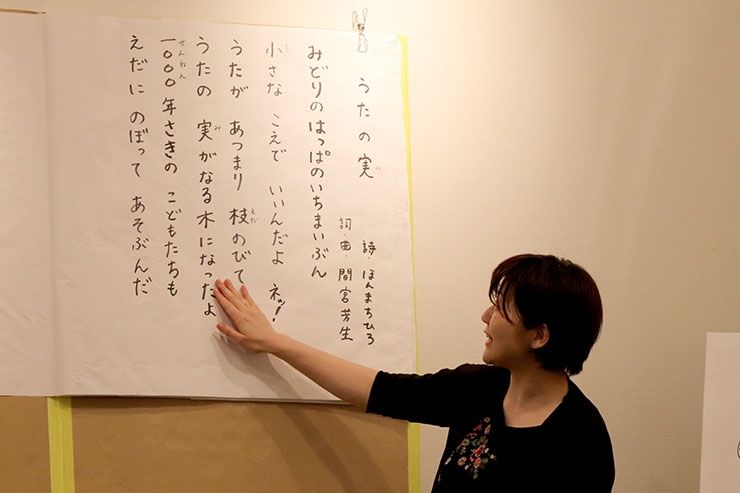 うたの実
み
詩・ほんまちひろ
詞・曲・間宮芳生
みどりのはっぱのいちまいぶん
小さな こえで いいんだよ ネッ!
ちい
うたが あつまり 枝のびて
えだ
うたの 実がなる木になったよ
み
1000年さきの こどもたちも
せんねん
えだに のぼって あそぶんだ